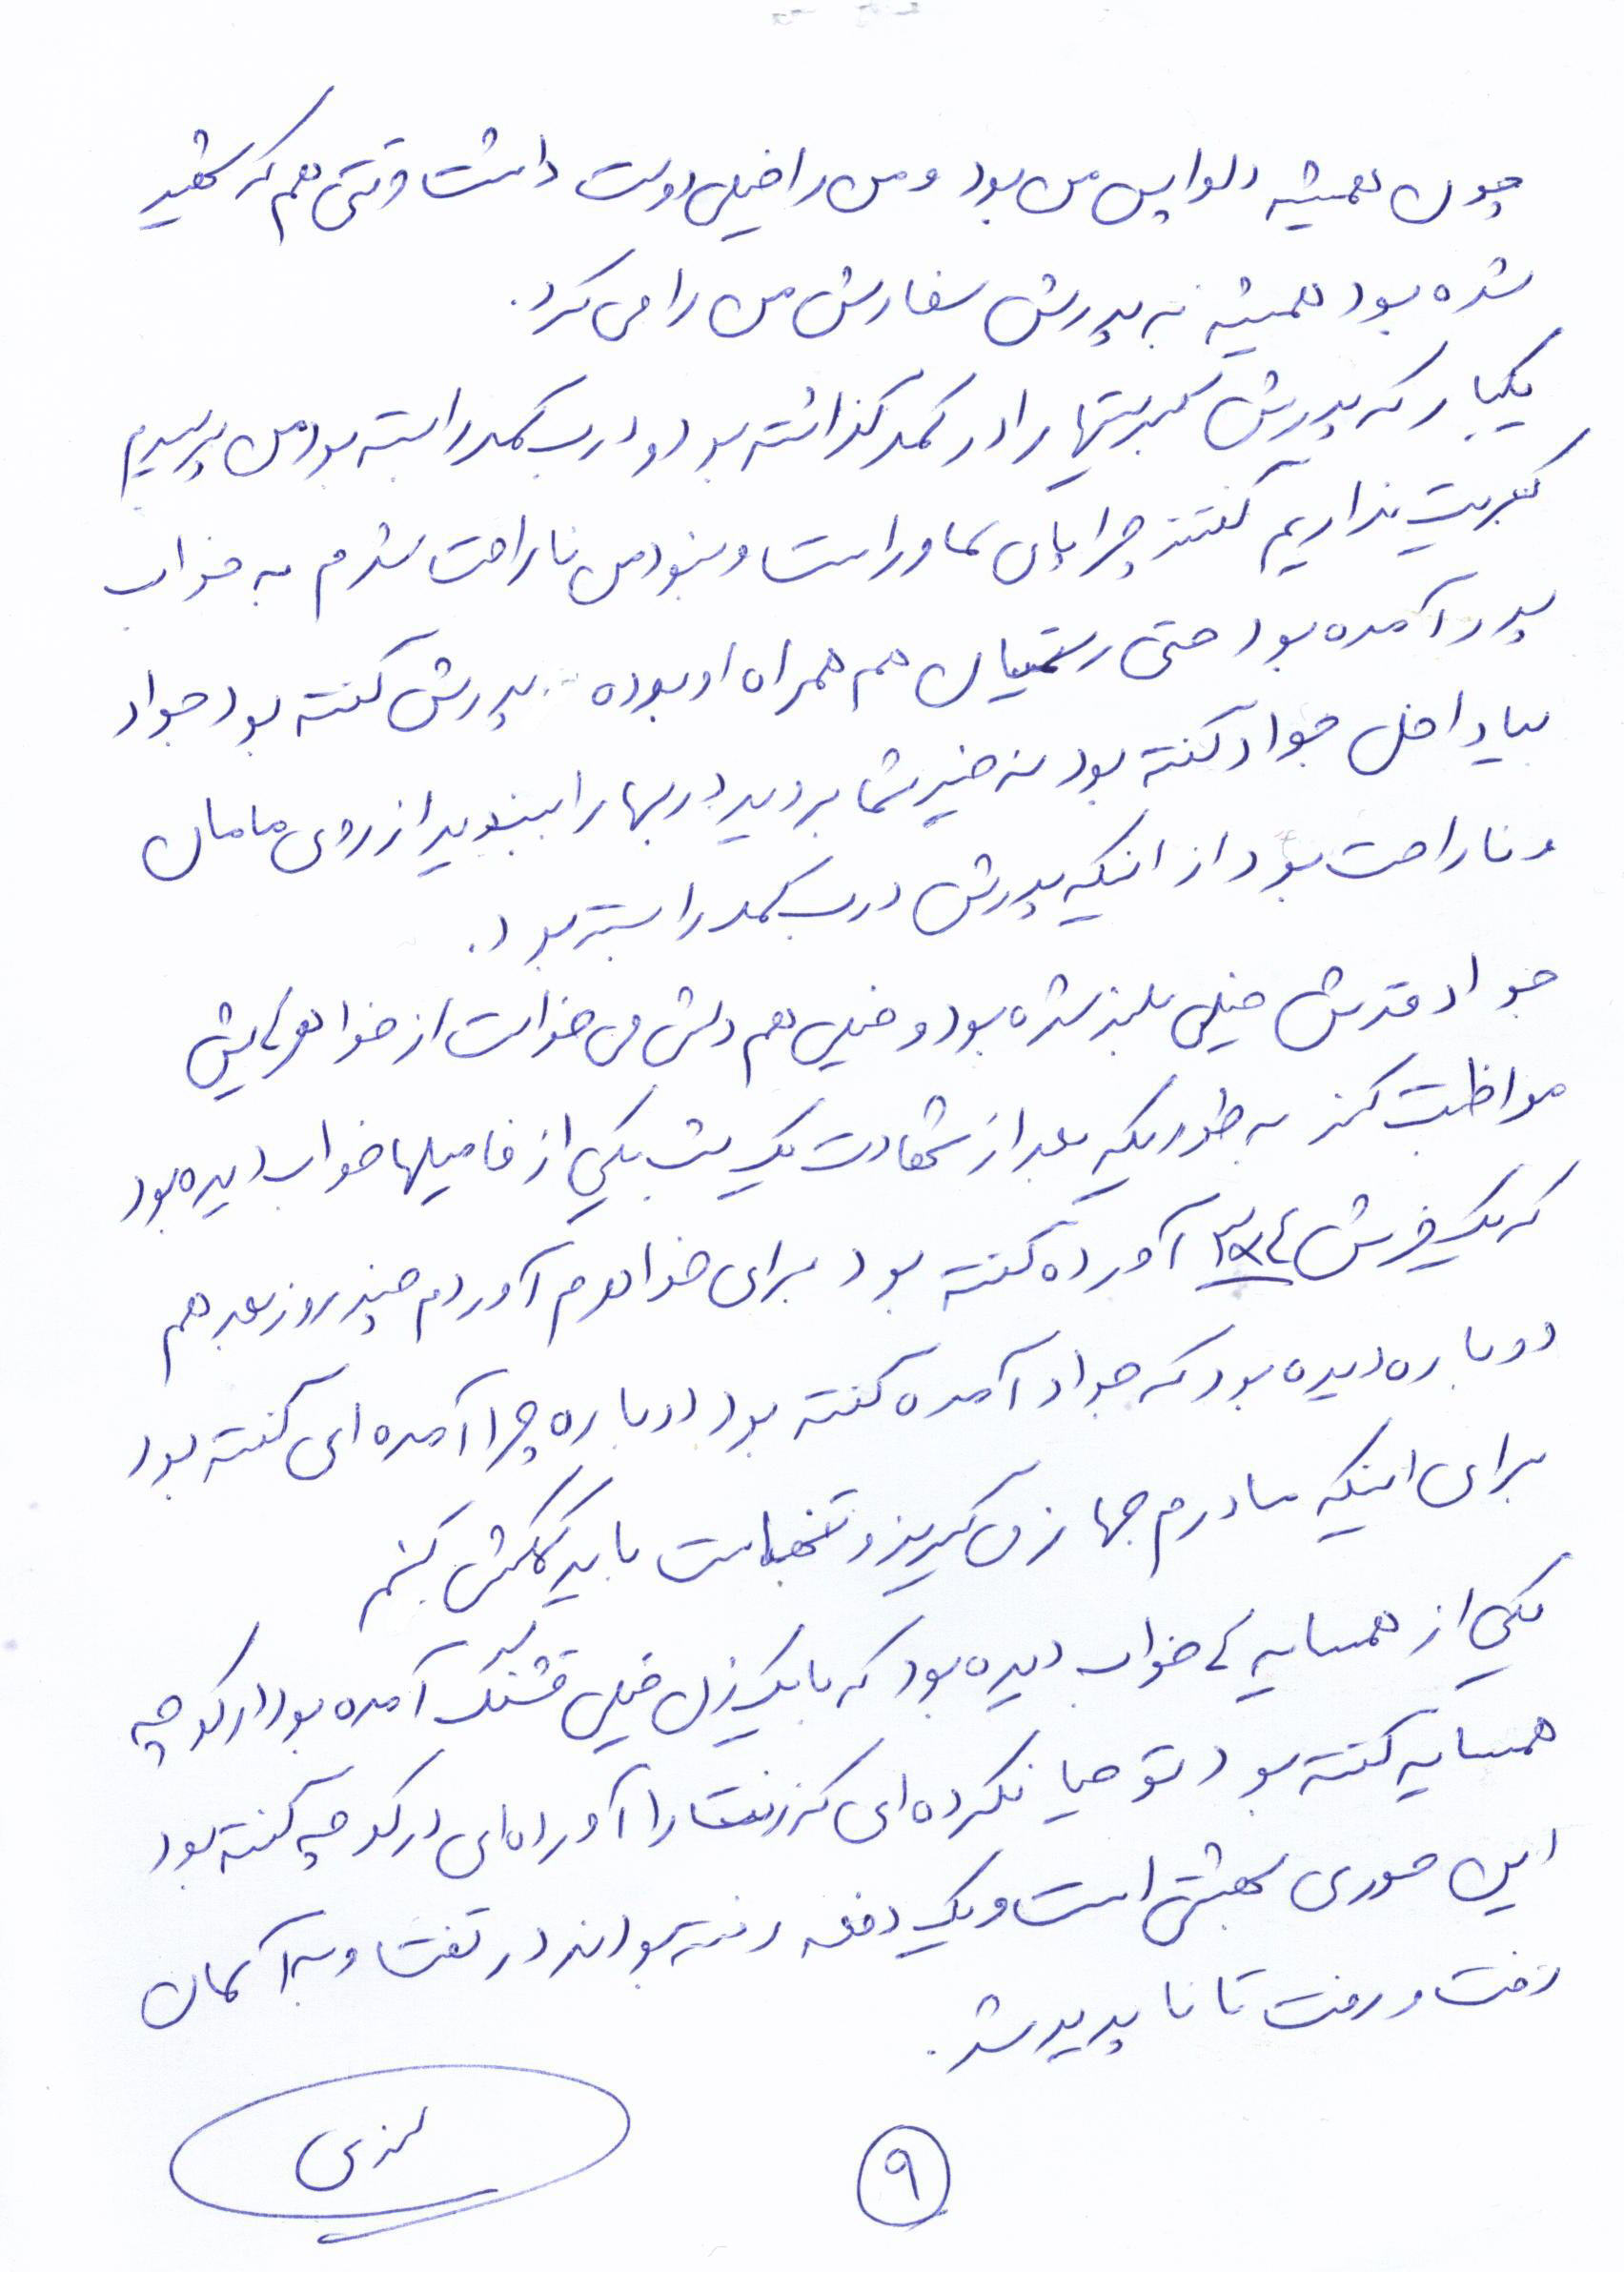 چون همیشه دلواپس من بود و من را خیلی دوست داشت وقتی هم که شهید
شده بود همیشه به پدرش سفارش من را می کرد.
یکبار که پدرش کبریتها را در کمد گذاشته بود و درب کمد را بسته بود من پرسیدم
کبریت نداریم گفتند چرا پای سماور است و نبود من ناراحت شدم به خواب
پدر آمده بود حتی رستمیان هم همراه او بوده پدرش گفته بود جواد
بیا داخل جواد گفته بود نه خیر شما بروید دربها را ببندید از روی مامان
و ناراحت بود از اینکه پدرش درب کمد را بسته بود.
جواد قدش خیلی بلند شده بود و خیلی هم دلش می خواست از خواهرهایش
مواظبت کند به طوریکه بعد از شهادت یک شب یکی از فامیلها خواب دیده بود
که یک فرش ۳×۴ آورده گفته بود برای خواهرم آوردم چند روز بعد هم
دوباره دیده بود که جواد آمده گفته بود دوباره چرا آمده ای گفته بود
برای اینکه مادرم جهاز می گیرد و تنهاست باید کمکش کنم
یکی از همسایه ها خواب دیده بود که با یک زن خیلی قشنگ آمده بود در کوچه
همسایه گفته بود تو حیا نکرده ای که زنت را آورده ای در کوچه گفته بود
این حوری بهشتی است و یک دفعه رفته بودند در تفت و به آسمان
رفت و رفت تا ناپدید شد.
۹